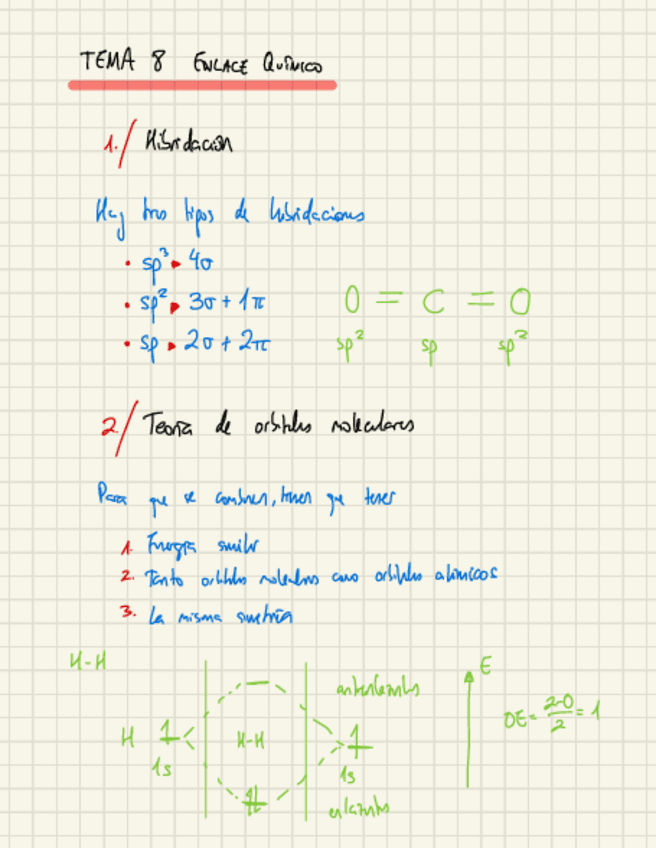 TEMA 8 ENLACE QUÍMICO
1./ Hibridación
Hay tres tipos de hibridaciones
• sp³ ▸ 4σ
• sp² ▸ 3σ + 1π
• sp ▸ 2σ + 2π
O = C = O
sp² sp sp²
2/ Teoría de orbitales moleculares
Para que se combinen, tienen que tener
1. Energía similar
2. Tanto orbitales moleculares como orbitales atómicos
3. La misma simetría
H-H
E
antienlazantes
OE = 2-0/2 = 1
H
H-H
1s
1s
enlazantes